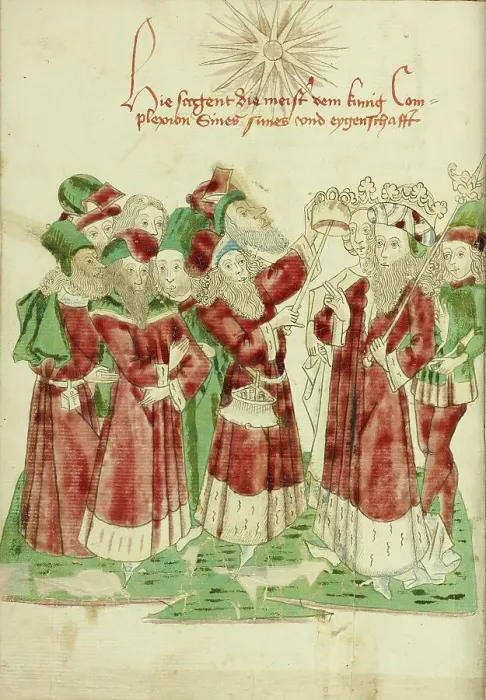 Hie sagent die meist dem kunig Com=
plexion Sines sunes vnd eygenschafft